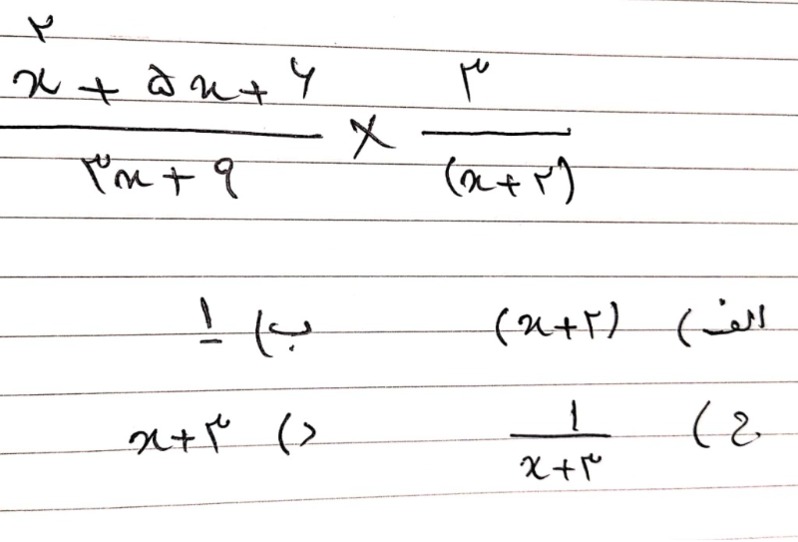 x² + ۵x + ۶ / ۳x + ۹ × ۳ / (x + ۲)
الف) (x+۲) ب) ۱
ج) ۱ / x+۳ د) x+۳